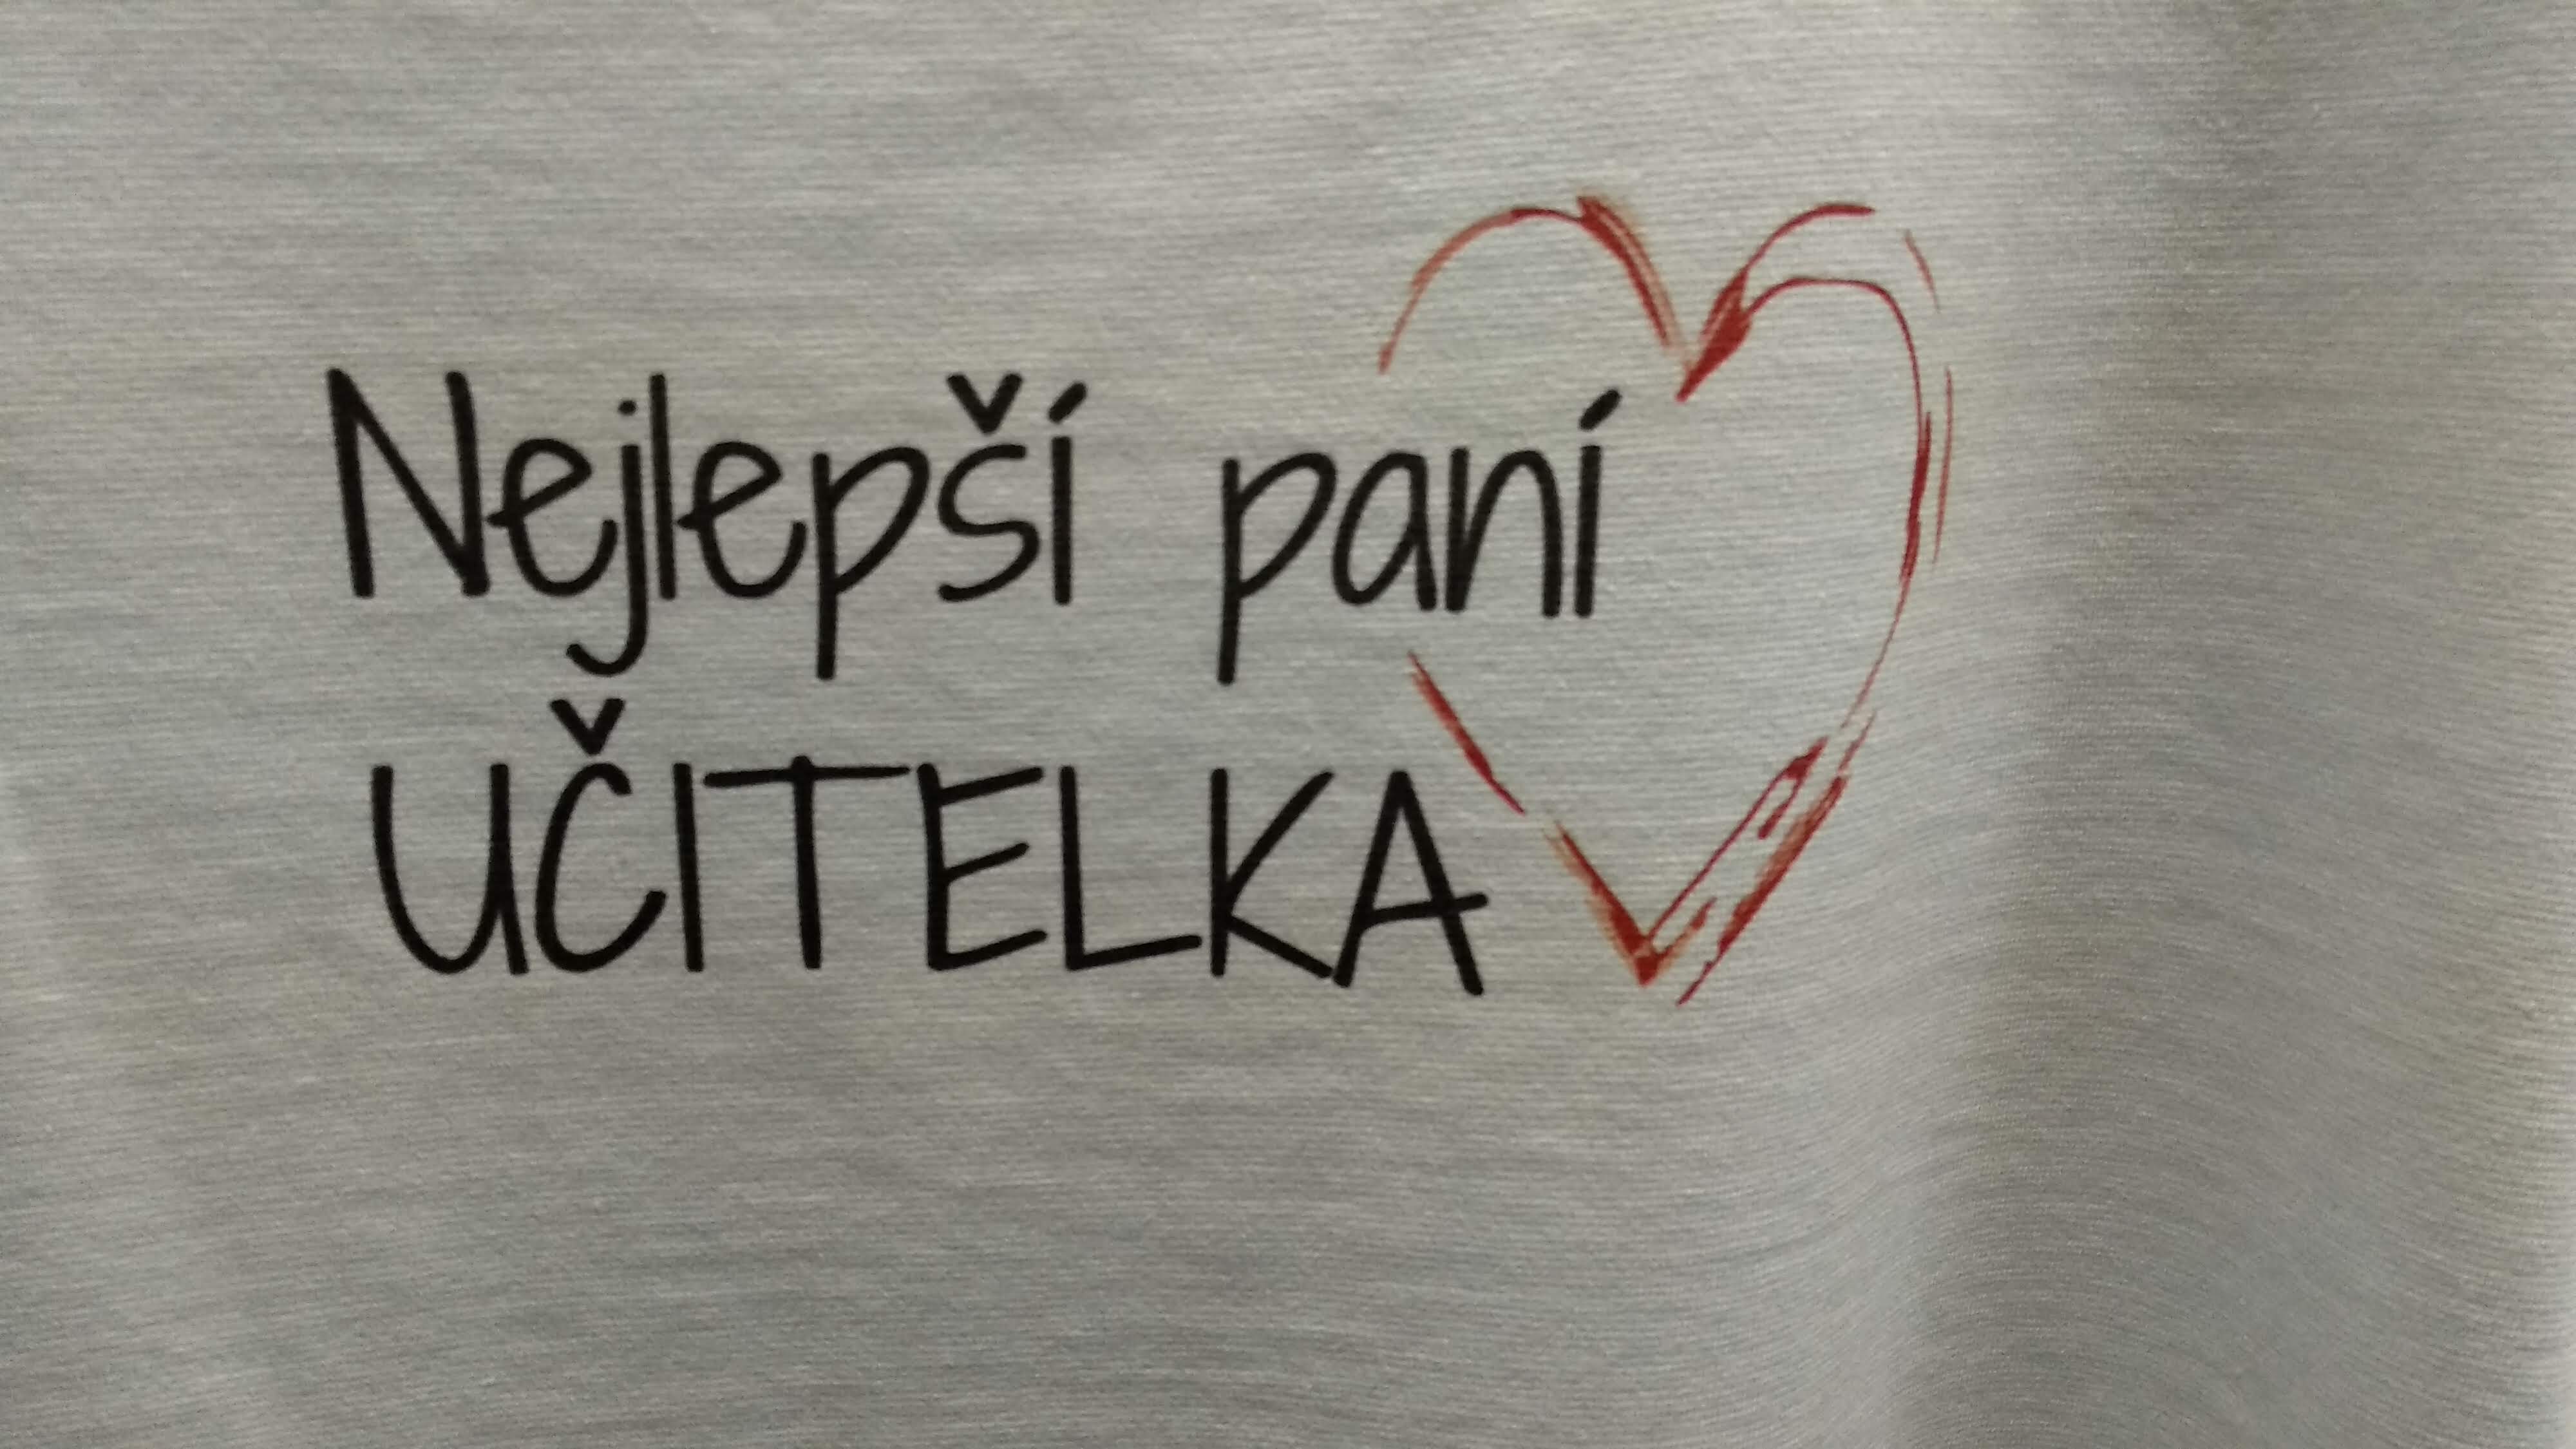 Nejlepší paní
UČITELKA